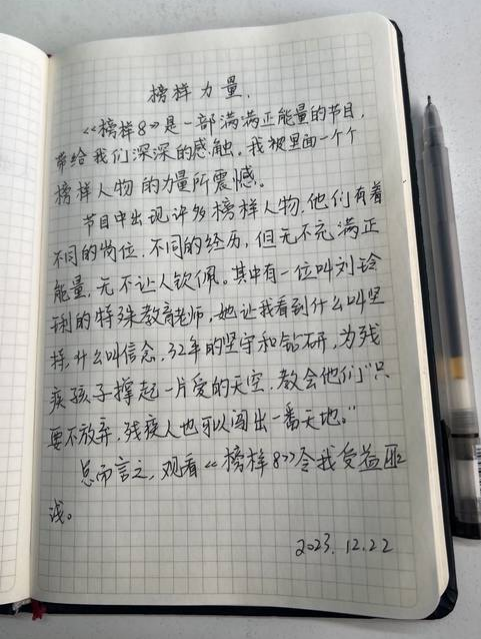 榜样力量.
《榜样8》是一部满满正能量的节目,
带给我们深深的感触,我被里面一个个
榜样人物的力量所震憾。
节目中出现许多榜样人物,他们有着
不同的岗位,不同的经历,但无不充满正
能量,无不让人钦佩。其中有一位叫刘玲
琍的特殊教育老师,她让我看到什么叫坚
持,什么叫信念,32年的坚守和钻研,为残
疾孩子撑起一片爱的天空,教会他们"只
要不放弃,残疾人也可以闯出一番天地。"
总而言之,观看《榜样8》令我受益匪
浅。
2023.12.22